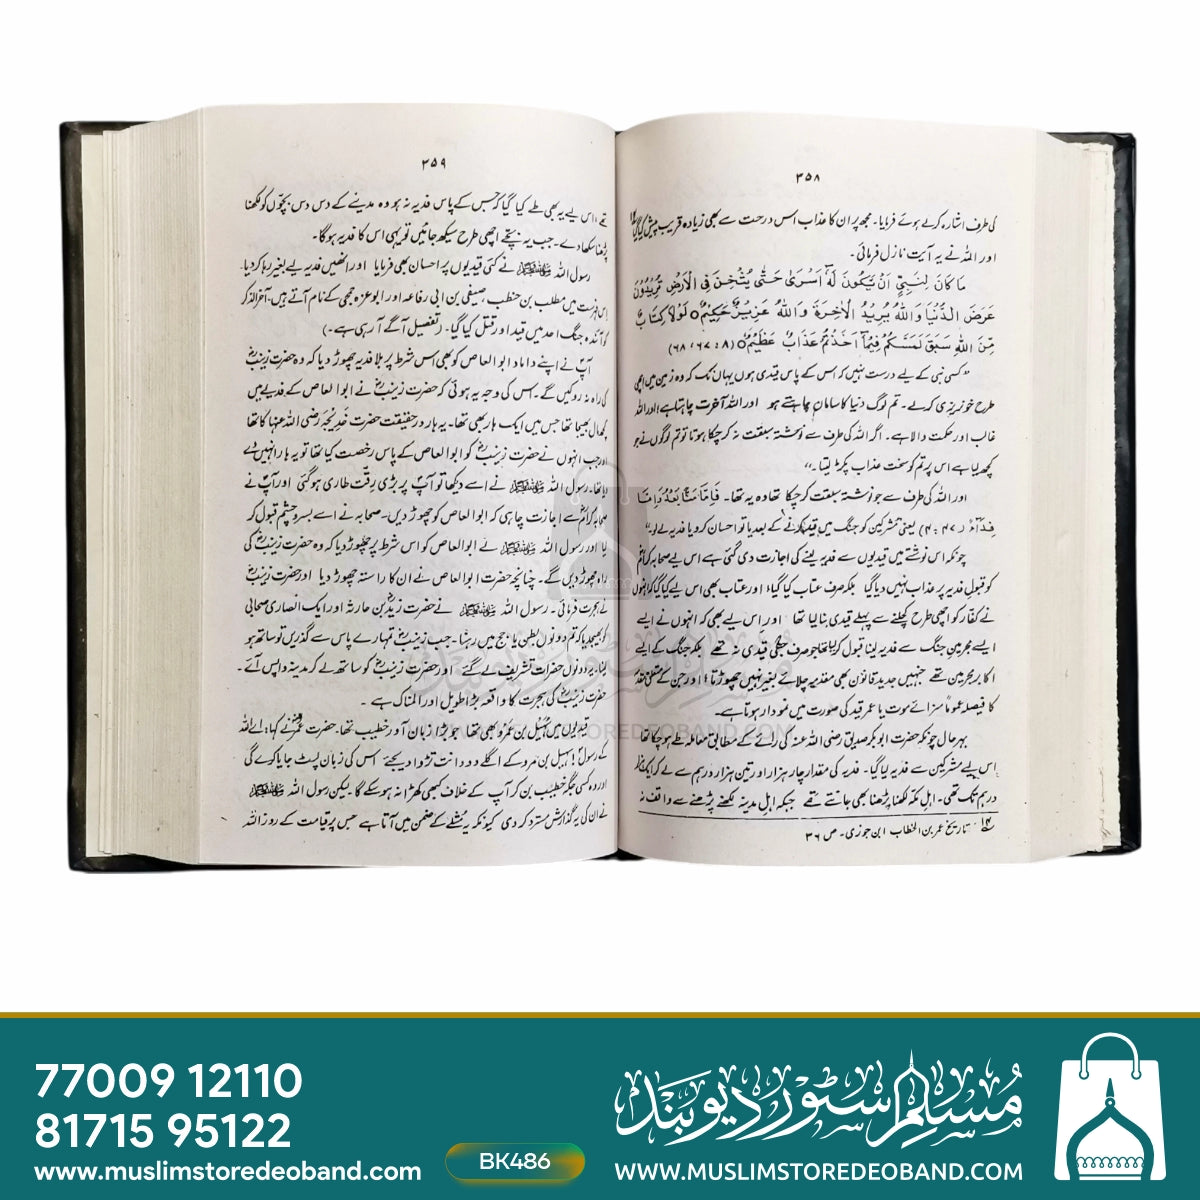 ۳۵۸
کی طرف اشارہ کرتے ہوئے فرمایا۔ مجھ پر ان کا عذاب اس درخت سے بھی زیادہ قریب پیش کیا گیا
اور اللہ نے یہ آیت نازل فرمائی۔
مَا كَانَ لِنَبِيٍّ اَنْ يَّكُوْنَ لَهٗٓ اَسْرٰى حَتّٰى يُثْخِنَ فِى الْاَرْضِ تُرِيْدُوْنَ
عَرَضَ الدُّنْيَا وَاللّٰهُ يُرِيْدُ الْاٰخِرَةَ وَاللّٰهُ عَزِيْزٌ حَكِيْمٌ ○ لَوْلَا كِتٰبٌ
مِّنَ اللّٰهِ سَبَقَ لَمَسَّكُمْ فِيْمَآ اَخَذْتُمْ عَذَابٌ عَظِيْمٌ ○ (۸: ۶۷، ۶۸)
”کسی نبی کے لیے درست نہیں کہ اس کے پاس قیدی ہوں یہاں تک کہ وہ زمین میں اچھی
طرح خونریزی کرلے۔ تم لوگ دنیا کا سامان چاہتے ہو اور اللہ آخرت چاہتا ہے اور اللہ
غالب اور حکمت والا ہے۔ اگر اللہ کی طرف سے نوشتہ سبقت نہ کر چکا ہوتا تو تم لوگوں نے جو
کچھ لیا ہے اس پر تم کو سخت عذاب پکڑ لیتا۔“
اور اللہ کی طرف سے جو نوشتہ سبقت کر چکا تھا وہ یہ تھا۔ فَاِمَّا مَنًّا بَعْدُ وَاِمَّا
فِدَآءً (۴۷: ۴) یعنی مشرکین کو جنگ میں قید کرنے کے بعد یا تو احسان کرو یا فدیہ لے لو“
چونکہ اس نوشتے میں قیدیوں سے فدیہ لینے کی اجازت دی گئی ہے اس لیے صحابہ کرام
کو قبولِ فدیہ پر عذاب نہیں دیا گیا بلکہ صرف عتاب کیا گیا، اور عتاب بھی اس لیے کیا گیا کہ انہوں
نے کفار کو اچھی طرح کچلنے سے پہلے قیدی بنا لیا تھا اور اس لیے بھی کہ انہوں نے ایسے
ایسے مجرمین جنگ سے فدیہ لینا قبول کر لیا تھا جو صرف جنگی قیدی نہ تھے بلکہ جنگ کے
اکابر مجرمین تھے جنہیں جدید قانون بھی مقدمہ چلائے بغیر نہیں چھوڑتا، اور جن کے متعلق مقدمے
کا فیصلہ عموماً سزائے موت یا عمر قید کی صورت میں نمودار ہوتا ہے۔
بہر حال چونکہ حضرت ابوبکر صدیق رضی اللہ عنہ کی رائے کے مطابق معاملہ طے ہو چکا تھا
اس لیے مشرکین سے فدیہ لیا گیا۔ فدیہ کی مقدار چار ہزار اور تین ہزار درہم سے لے کر ایک ہزار
درہم تک تھی۔ اہل مکہ لکھنا پڑھنا بھی جانتے تھے جبکہ اہل مدینہ لکھنے پڑھنے سے واقف نہ
تاریخ عمر بن الخطاب ابن جوزی۔ ص ۳۶
۳۵۹
تھے، اس لیے یہ بھی طے کیا گیا کہ جس کے پاس فدیہ نہ ہو وہ مدینے کے دس دس بچوں کو لکھنا
پڑھنا سکھا دے۔ جب یہ بچے اچھی طرح سیکھ جائیں تو یہی اس کا فدیہ ہوگا۔
رسول اللہ ﷺ نے کئی قیدیوں پر احسان بھی فرمایا اور انھیں فدیہ لیے بغیر رہا کر دیا۔
اس فہرست میں مطلب بن حنطب، صیفی بن ابی رفاعہ اور ابو عزہ جمحی کے نام آتے ہیں۔ آخر الذکر
کو آئندہ جنگ احد میں قید اور قتل کیا گیا۔ (تفصیل آگے آرہی ہے۔)
آپ نے اپنے داماد ابو العاص کو بھی اس شرط پر بلا فدیہ چھوڑ دیا کہ وہ حضرت زینبؓ
کی راہ نہ روکیں گے۔ اس کی وجہ یہ ہوئی کہ حضرت زینبؓ نے ابو العاص کے فدیے میں
کچھ مال بھیجا تھا جس میں ایک ہار بھی تھا۔ یہ ہار درحقیقت حضرت خدیجہ رضی اللہ عنہا کا تھا
اور جب انہوں نے حضرت زینبؓ کو ابو العاص کے پاس رخصت کیا تھا تو یہ ہار انہیں دے
دیا تھا۔ رسول اللہ ﷺ نے اسے دیکھا تو آپ پر بڑی رقّت طاری ہوگئی اور آپ نے
صحابہ کرامؓ سے اجازت چاہی کہ ابو العاص کو چھوڑ دیں۔ صحابہ نے اسے بسر و چشم قبول کر
لیا اور رسول اللہ ﷺ نے ابو العاص کو اس شرط پر چھوڑ دیا کہ وہ حضرت زینبؓ کی
راہ چھوڑ دیں گے۔ چنانچہ حضرت ابو العاص نے ان کا راستہ چھوڑ دیا اور حضرت زینبؓ
نے ہجرت فرمائی۔ رسول اللہ ﷺ نے حضرت زیدؓ بن حارثہ اور ایک انصاری صحابی
کو بھیج دیا کہ تم دونوں بطن یاجج میں رہنا۔ جب زینبؓ تمہارے پاس سے گذریں تو ساتھ ہو
لینا۔ یہ دونوں حضرات تشریف لے گئے اور حضرت زینبؓ کو ساتھ لے کر مدینہ واپس آئے۔
حضرت زینبؓ کی ہجرت کا واقعہ بڑا طویل اور المناک ہے۔
قیدیوں میں سُہیل بن عمرو بھی تھا جو بڑا زبان آور خطیب تھا۔ حضرت عمرؓ نے کہا، اے اللہ
کے رسول! سہیل بن عمرو کے اگلے دو دانت تڑوا دیجئے اس کی زبان لپٹ جایا کرے گی
اور وہ کسی جگہ خطیب بن کر آپ کے خلاف کبھی کھڑا نہ ہو سکے گا۔ لیکن رسول اللہ ﷺ
نے ان کی یہ گذارش مسترد کر دی کیونکہ یہ مُثلے کے ضمن میں آتا ہے جس پر قیامت کے روز اللہ
WWW.MUSLIMSTOREDEOBAND.COM
77009 12110
81715 95122
www.muslimstoredeoband.com
BK486
مسلم سٹور دیوبند
WWW.MUSLIMSTOREDEOBAND.COM